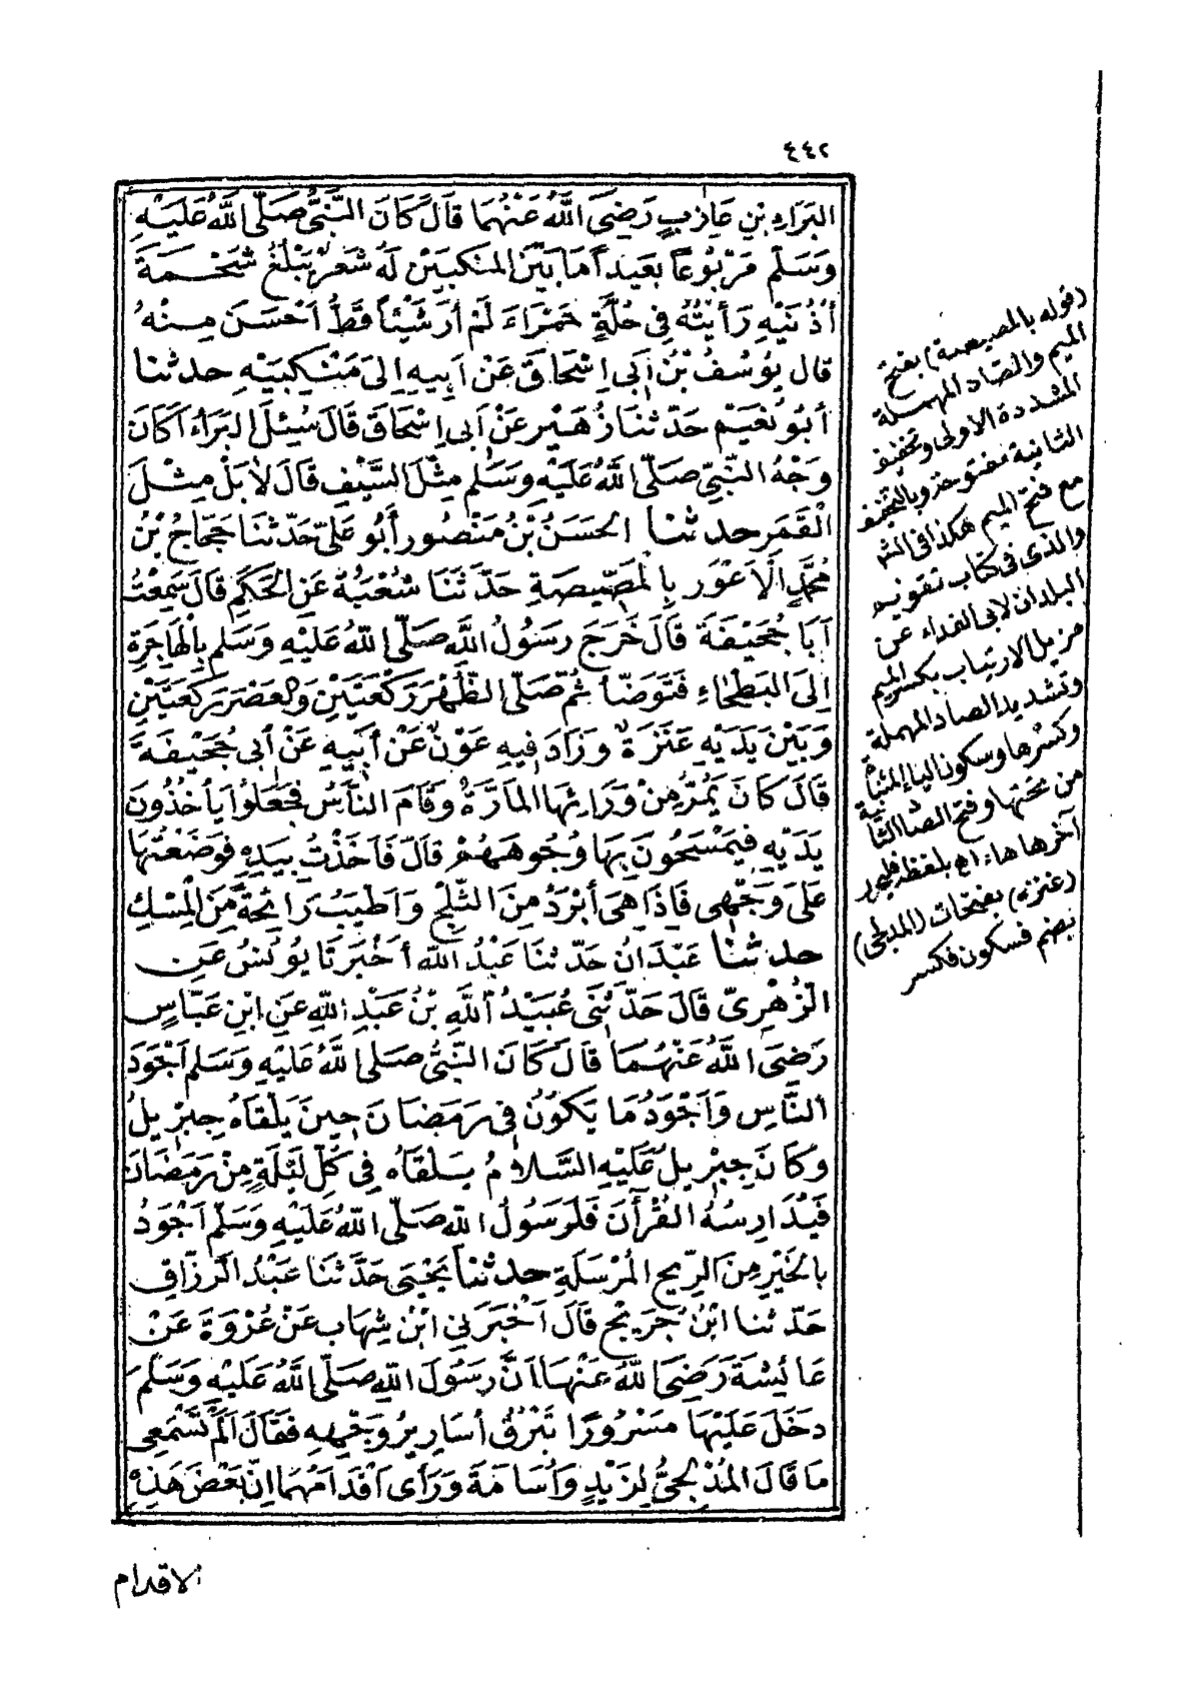 ٤٤٢
البَرَاءِ بْنِ عَازِبٍ رَضِيَ اللَّهُ عَنْهُمَا قَالَ كَانَ النَّبِيُّ صَلَّى اللَّهُ عَلَيْهِ
وَسَلَّمَ مَرْبُوعًا بَعِيدَ مَا بَيْنَ المَنْكِبَيْنِ لَهُ شَعَرٌ يَبْلُغُ شَحْمَةَ
أُذُنَيْهِ رَأَيْتُهُ فِي حُلَّةٍ حَمْرَاءَ لَمْ أَرَ شَيْئًا قَطُّ أَحْسَنَ مِنْهُ
قال يُوسُفُ بْنُ أَبِي إِسْحَاقَ عَنْ أَبِيهِ إِلَى مَنْكِبَيْهِ حدثنا
أَبُو نُعَيْمٍ حَدَّثَنَا زُهَيْرٌ عَنْ أَبِي إِسْحَاقَ قَالَ سُئِلَ البَرَاءُ أَكَانَ
وَجْهُ النَّبِيِّ صَلَّى اللَّهُ عَلَيْهِ وَسَلَّم مِثْلَ السَّيْفِ قَالَ لَا بَلْ مِثْلَ
القَمَرِ حدثنا الحَسَنُ بْنُ مَنْصُورٍ أَبُو عَلِيٍّ حَدَّثَنَا حَجَّاجُ بْنُ
مُحَمَّدٍ الأَعْوَر بِالمَصِّيصَةِ حَدَّثَنَا شُعْبَةُ عَنِ الحَكَمِ قَالَ سَمِعْتُ
أَبَا جُحَيْفَةَ قَالَ خَرَجَ رَسُولُ اللَّهِ صَلَّى اللَّهُ عَلَيْهِ وَسَلَّم بِالهَاجِرَةِ
إِلَى البَطْحَاءِ فَتَوَضَّأَ ثُمَّ صَلَّى الظُّهْرَ رَكْعَتَيْنِ وَالعَصْرَ رَكْعَتَيْنِ
وَبَيْنَ يَدَيْهِ عَنَزَةٌ وَزَادَ فِيهِ عَوْنٌ عَنْ أَبِيهِ عَنْ أَبِي جُحَيْفَةَ
قَالَ كَانَ يَمُرُّ مِنْ وَرَائِهَا المَارَّةُ وَقَامَ النَّاسُ فَجَعَلُوا يَأْخُذُونَ
يَدَيْهِ فَيَمْسَحُونَ بِهَا وُجُوهَهُمْ قَالَ فَأَخَذْتُ بِيَدِهِ فَوَضَعْتُهَا
عَلَى وَجْهِي فَإِذَا هِيَ أَبْرَدُ مِنَ الثَّلْجِ وَأَطْيَبُ رَائِحَةً مِنَ الْمِسْكِ
حدثنا عَبْدَانُ حَدَّثَنَا عَبْدُ اللَّهِ أَخْبَرَنَا يُونُسُ عَنِ
الزُّهْرِيِّ قَالَ حَدَّثَنِي عُبَيْدُ اللَّهِ بْنُ عَبْدِ اللَّهِ عَنِ ابْنِ عَبَّاسٍ
رَضِيَ اللَّهُ عَنْهُمَا قَالَ كَانَ النَّبِيُّ صَلَّى اللَّهُ عَلَيْهِ وَسَلَّم أَجْوَدَ
النَّاسِ وَأَجْوَدُ مَا يَكُونُ فِي رَمَضَانَ حِينَ يَلْقَاهُ جِبْرِيلُ
وَكَانَ جِبْرِيلُ عَلَيْهِ السَّلَامُ يَلْقَاهُ فِي كُلِّ لَيْلَةٍ مِنْ رَمَضَانَ
فَيُدَارِسُهُ القُرْآنَ فَلَرَسُولُ اللَّهِ صَلَّى اللَّهُ عَلَيْهِ وَسَلَّمَ أَجْوَدُ
بِالخَيْرِ مِنَ الرِّيحِ المُرْسَلَةِ حدثنا يَحْيَى حَدَّثَنَا عَبْدُ الرَّزَّاقِ
حَدَّثَنَا ابْنُ جُرَيْجٍ قَالَ أَخْبَرَنِي ابْنُ شِهَابٍ عَنْ عُرْوَةَ عَنْ
عَائِشَةَ رَضِيَ اللَّهُ عَنْهَا أَنَّ رَسُولَ اللَّهِ صَلَّى اللَّهُ عَلَيْهِ وَسَلَّمَ
دَخَلَ عَلَيْهَا مَسْرُورًا تَبْرُقُ أَسَارِيرُ وَجْهِهِ فَقَالَ أَلَمْ تَسْمَعِي
مَا قَالَ المُدْلِجِيُّ لِزَيْدٍ وَأُسَامَةَ وَرَأَى أَقْدَامَهُمَا إِنَّ بَعْضَ هَذِهِ
الاقدام
(قوله بالمصيصة) بفتح
الميم والصاد المهملة
المشددة الاولى وتخفيف
الثانية مفتوحة وبالتخفيف
مع فتح الميم هكذا فى الشر
والذى فى كتاب تقويم
البلدان لابى الفداء عن
مزيل الارتياب بكسر الميم
وتشديد الصاد المهملة
وكسرها وسكون الياء المثناة
من تحتها وفتح الصاد الثانية
آخرها هاء اه بلفظه
(عنزة) بفتحات (المدلجى)
بضم فسكون فكسر